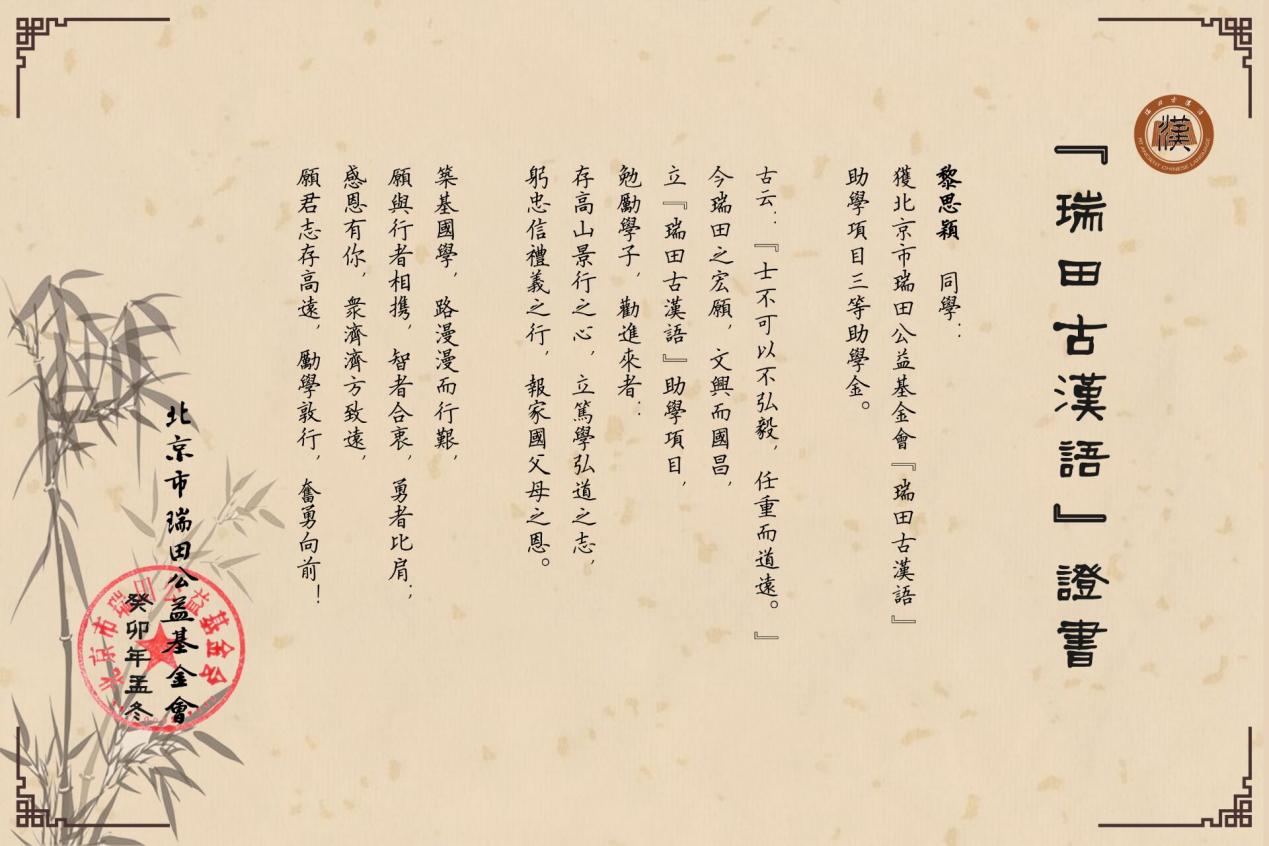 『瑞田古漢語』證書
瑞田古漢語
漢
RT ANCIENT CHINESE LANGUAGE
黎思穎 同學：
獲北京市瑞田公益基金會『瑞田古漢語』
助學項目三等助學金。
古云：『士不可以不弘毅，任重而道遠。』
今瑞田之宏願，文興而國昌，
立『瑞田古漢語』助學項目，
勉勵學子，勸進來者：
存高山景行之心，立篤學弘道之志，
躬忠信禮義之行，報家國父母之恩。
築基國學，路漫漫而行艱，
願與行者相攜，智者合衷，勇者比肩；
感恩有你，衆濟濟方致遠，
願君志存高遠，勵學敦行，奮勇向前！
北京市瑞田公益基金會
癸卯年孟冬
北京市瑞田公益基金会